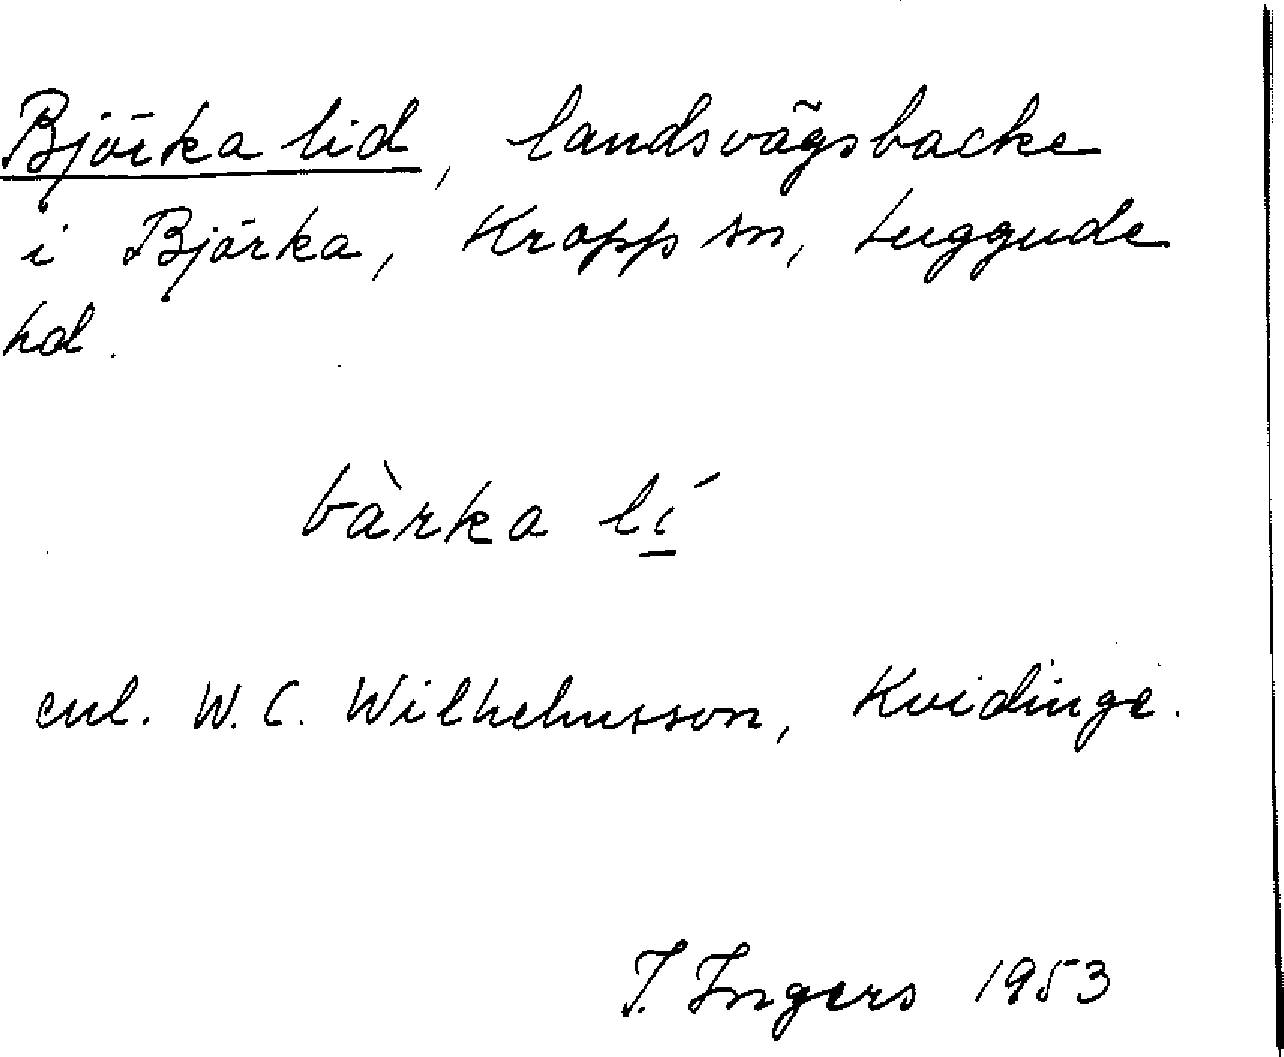 Björka lid, landsvägsbacke
i Björka, Kropp sn, Luggude
hd.
bàrka lí
enl. W. C. Wilhelmsson, Kvidinge.
I. Ingers 1953